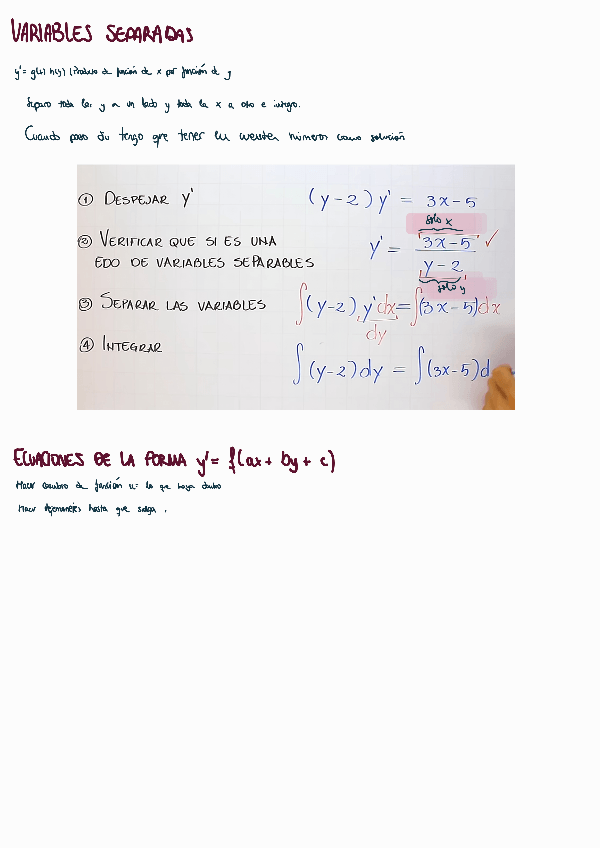 VARIABLES SEPARADAS
y' = g(x) h(y) (Producto de función de x por función de y
Separo toda la y a un lado y toda la x a otro e integro.
Cuando paso tengo que tener en cuenta números como solución
① DESPEJAR y' (y-2) y' = 3x-5
solo x
② VERIFICAR QUE SI ES UNA y' = 3x-5 ✓
EDO DE VARIABLES SEPARABLES y-2
solo y
③ SEPARAR LAS VARIABLES ∫(y-2) y'dx = ∫(3x-5)dx
dy
④ INTEGRAR ∫(y-2)dy = ∫(3x-5)d
ECUACIONES DE LA FORMA y' = f(ax + by + c)
Hacer cambio de función u = lo que haya dentro
Hacer hasta que salga.